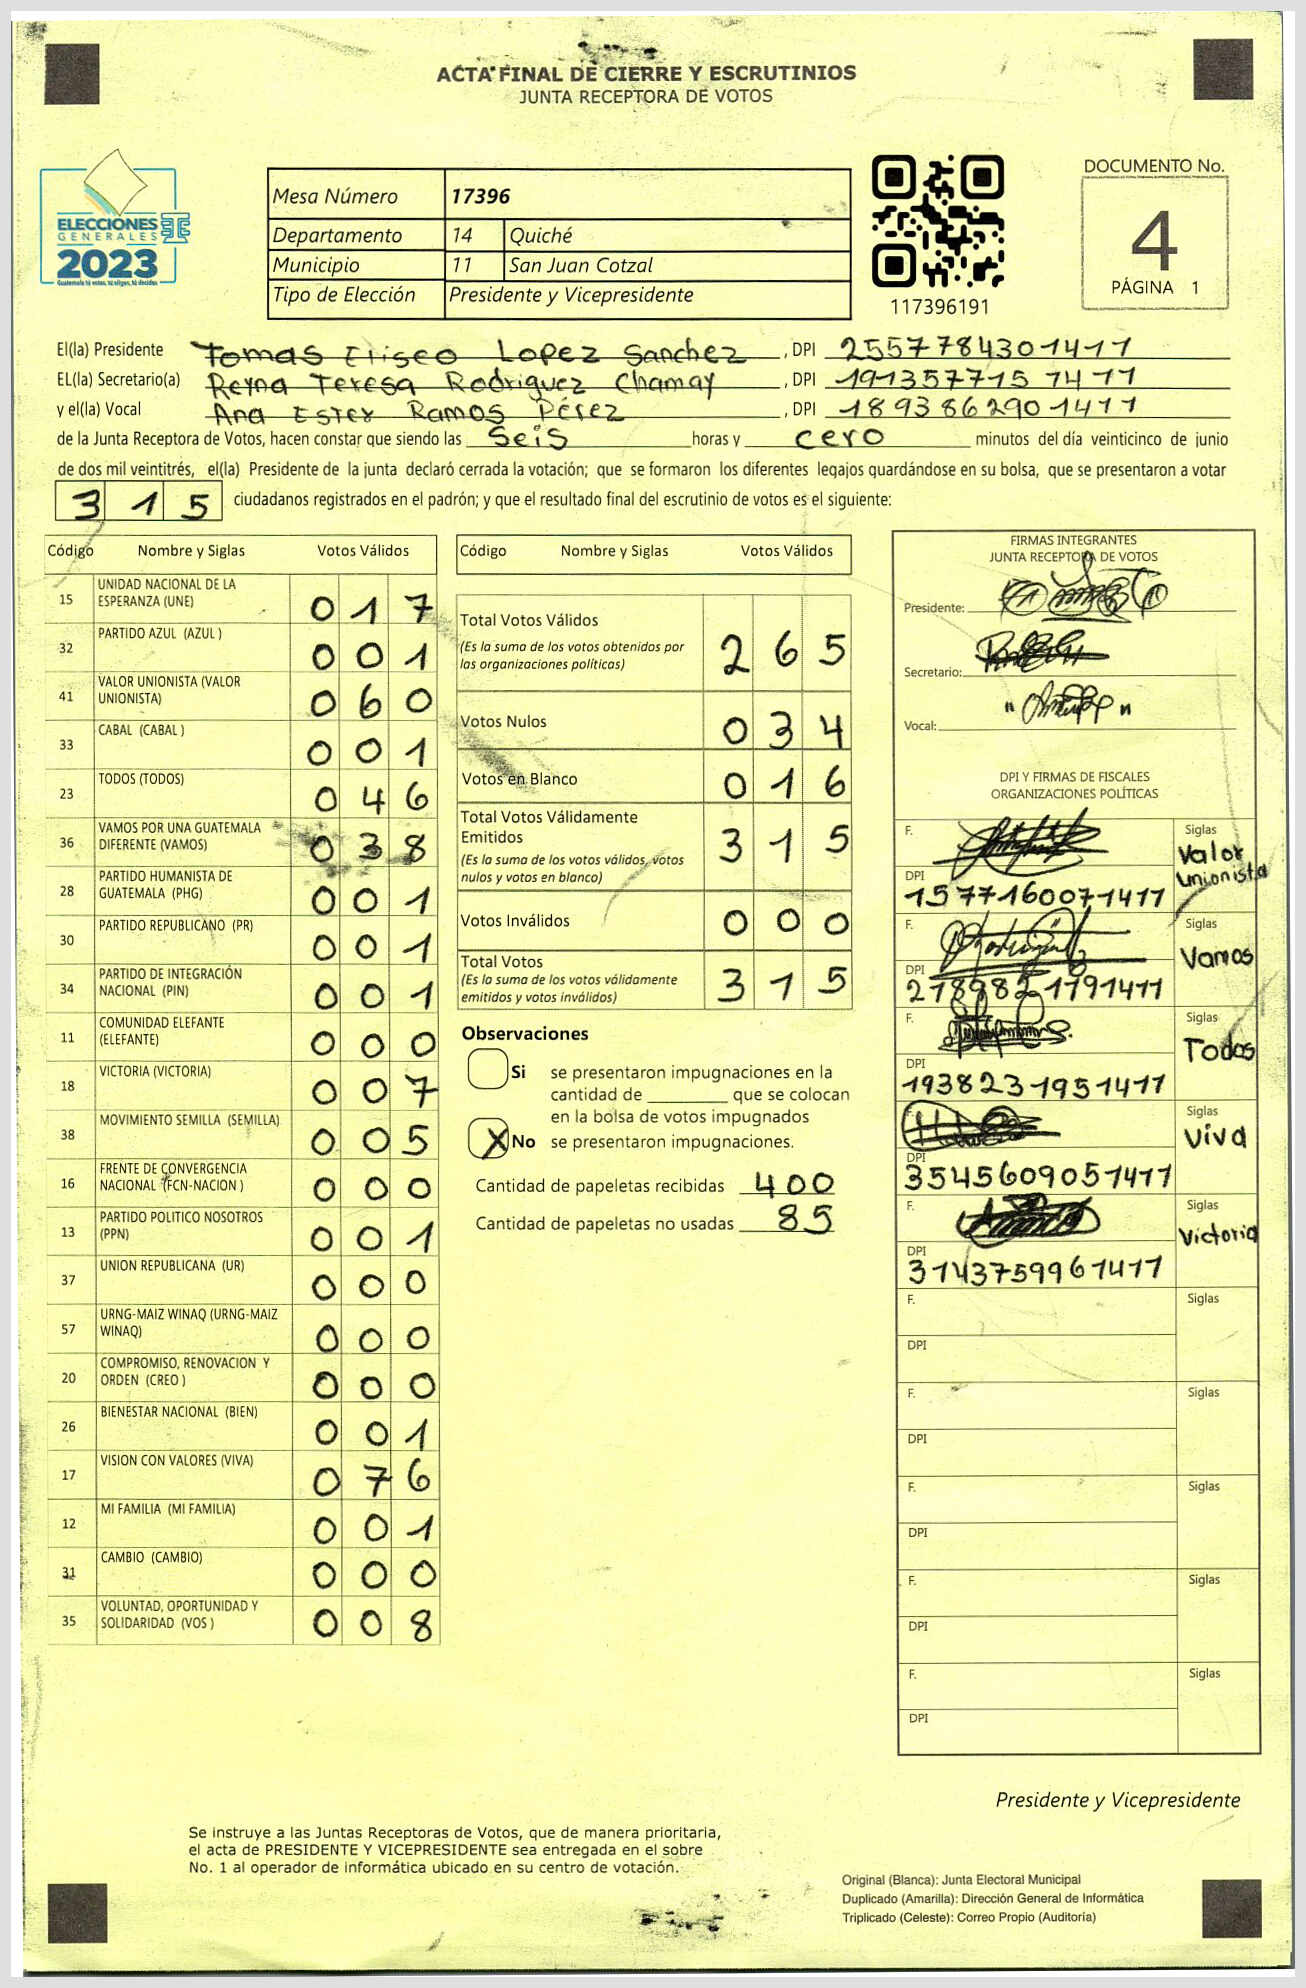 ACTA FINAL DE CIERRE Y ESCRUTINIOS
JUNTA RECEPTORA DE VOTOS
ELECCIONES
GENERALES
2023
Guatemala tú votas, tú eliges, tú decides
Mesa Número 17396
Departamento 14 Quiché
Municipio 11 San Juan Cotzal
Tipo de Elección Presidente y Vicepresidente
117396191
DOCUMENTO No.
4
PÁGINA 1
El(la) Presidente Tomas Eliseo Lopez Sanchez, DPI 2557784301411
EL(la) Secretario(a) Reyna Teresa Rodriguez Chamay, DPI 1913577151411
y el(la) Vocal Ana Ester Ramos Pérez, DPI 1893862901411
de la Junta Receptora de Votos, hacen constar que siendo las Seis horas y cero minutos del día veinticinco de junio
de dos mil veintitrés, el(la) Presidente de la junta declaró cerrada la votación; que se formaron los diferentes legajos guardándose en su bolsa, que se presentaron a votar
315 ciudadanos registrados en el padrón; y que el resultado final del escrutinio de votos es el siguiente:
Código Nombre y Siglas Votos Válidos
15 UNIDAD NACIONAL DE LA ESPERANZA (UNE) 017
32 PARTIDO AZUL (AZUL ) 001
41 VALOR UNIONISTA (VALOR UNIONISTA) 060
33 CABAL (CABAL ) 001
23 TODOS (TODOS) 046
36 VAMOS POR UNA GUATEMALA DIFERENTE (VAMOS) 038
28 PARTIDO HUMANISTA DE GUATEMALA (PHG) 001
30 PARTIDO REPUBLICANO (PR) 001
34 PARTIDO DE INTEGRACIÓN NACIONAL (PIN) 001
11 COMUNIDAD ELEFANTE (ELEFANTE) 000
18 VICTORIA (VICTORIA) 007
38 MOVIMIENTO SEMILLA (SEMILLA) 005
16 FRENTE DE CONVERGENCIA NACIONAL (FCN-NACION ) 000
13 PARTIDO POLITICO NOSOTROS (PPN) 001
37 UNION REPUBLICANA (UR) 000
57 URNG-MAIZ WINAQ (URNG-MAIZ WINAQ) 000
20 COMPROMISO, RENOVACION Y ORDEN (CREO ) 000
26 BIENESTAR NACIONAL (BIEN) 001
17 VISION CON VALORES (VIVA) 076
12 MI FAMILIA (MI FAMILIA) 001
31 CAMBIO (CAMBIO) 000
35 VOLUNTAD, OPORTUNIDAD Y SOLIDARIDAD (VOS ) 008
Código Nombre y Siglas Votos Válidos
Total Votos Válidos 265
(Es la suma de los votos obtenidos por
las organizaciones políticas)
Votos Nulos 034
Votos en Blanco 016
Total Votos Válidamente
Emitidos 315
(Es la suma de los votos válidos, votos
nulos y votos en blanco)
Votos Inválidos 000
Total Votos 315
(Es la suma de los votos válidamente
emitidos y votos inválidos)
Observaciones
Si se presentaron impugnaciones en la
cantidad de ________ que se colocan
en la bolsa de votos impugnados
X No se presentaron impugnaciones.
Cantidad de papeletas recibidas 400
Cantidad de papeletas no usadas 85
FIRMAS INTEGRANTES
JUNTA RECEPTORA DE VOTOS
Presidente:
Secretario:
Vocal:
DPI Y FIRMAS DE FISCALES
ORGANIZACIONES POLÍTICAS
F. Siglas
Valor Unionista
DPI 1577160071411
F. Siglas
Vamos
DPI 2789821791411
F. Siglas
Todos
DPI 1938231951411
F. Siglas
Viva
DPI 3545609051411
F. Siglas
Victoria
DPI 3143759961411
F. Siglas
DPI
F. Siglas
DPI
F. Siglas
DPI
F. Siglas
DPI
F. Siglas
DPI
Presidente y Vicepresidente
Se instruye a las Juntas Receptoras de Votos, que de manera prioritaria,
el acta de PRESIDENTE Y VICEPRESIDENTE sea entregada en el sobre
No. 1 al operador de informática ubicado en su centro de votación.
Original (Blanca): Junta Electoral Municipal
Duplicado (Amarilla): Dirección General de Informática
Triplicado (Celeste): Correo Propio (Auditoría)